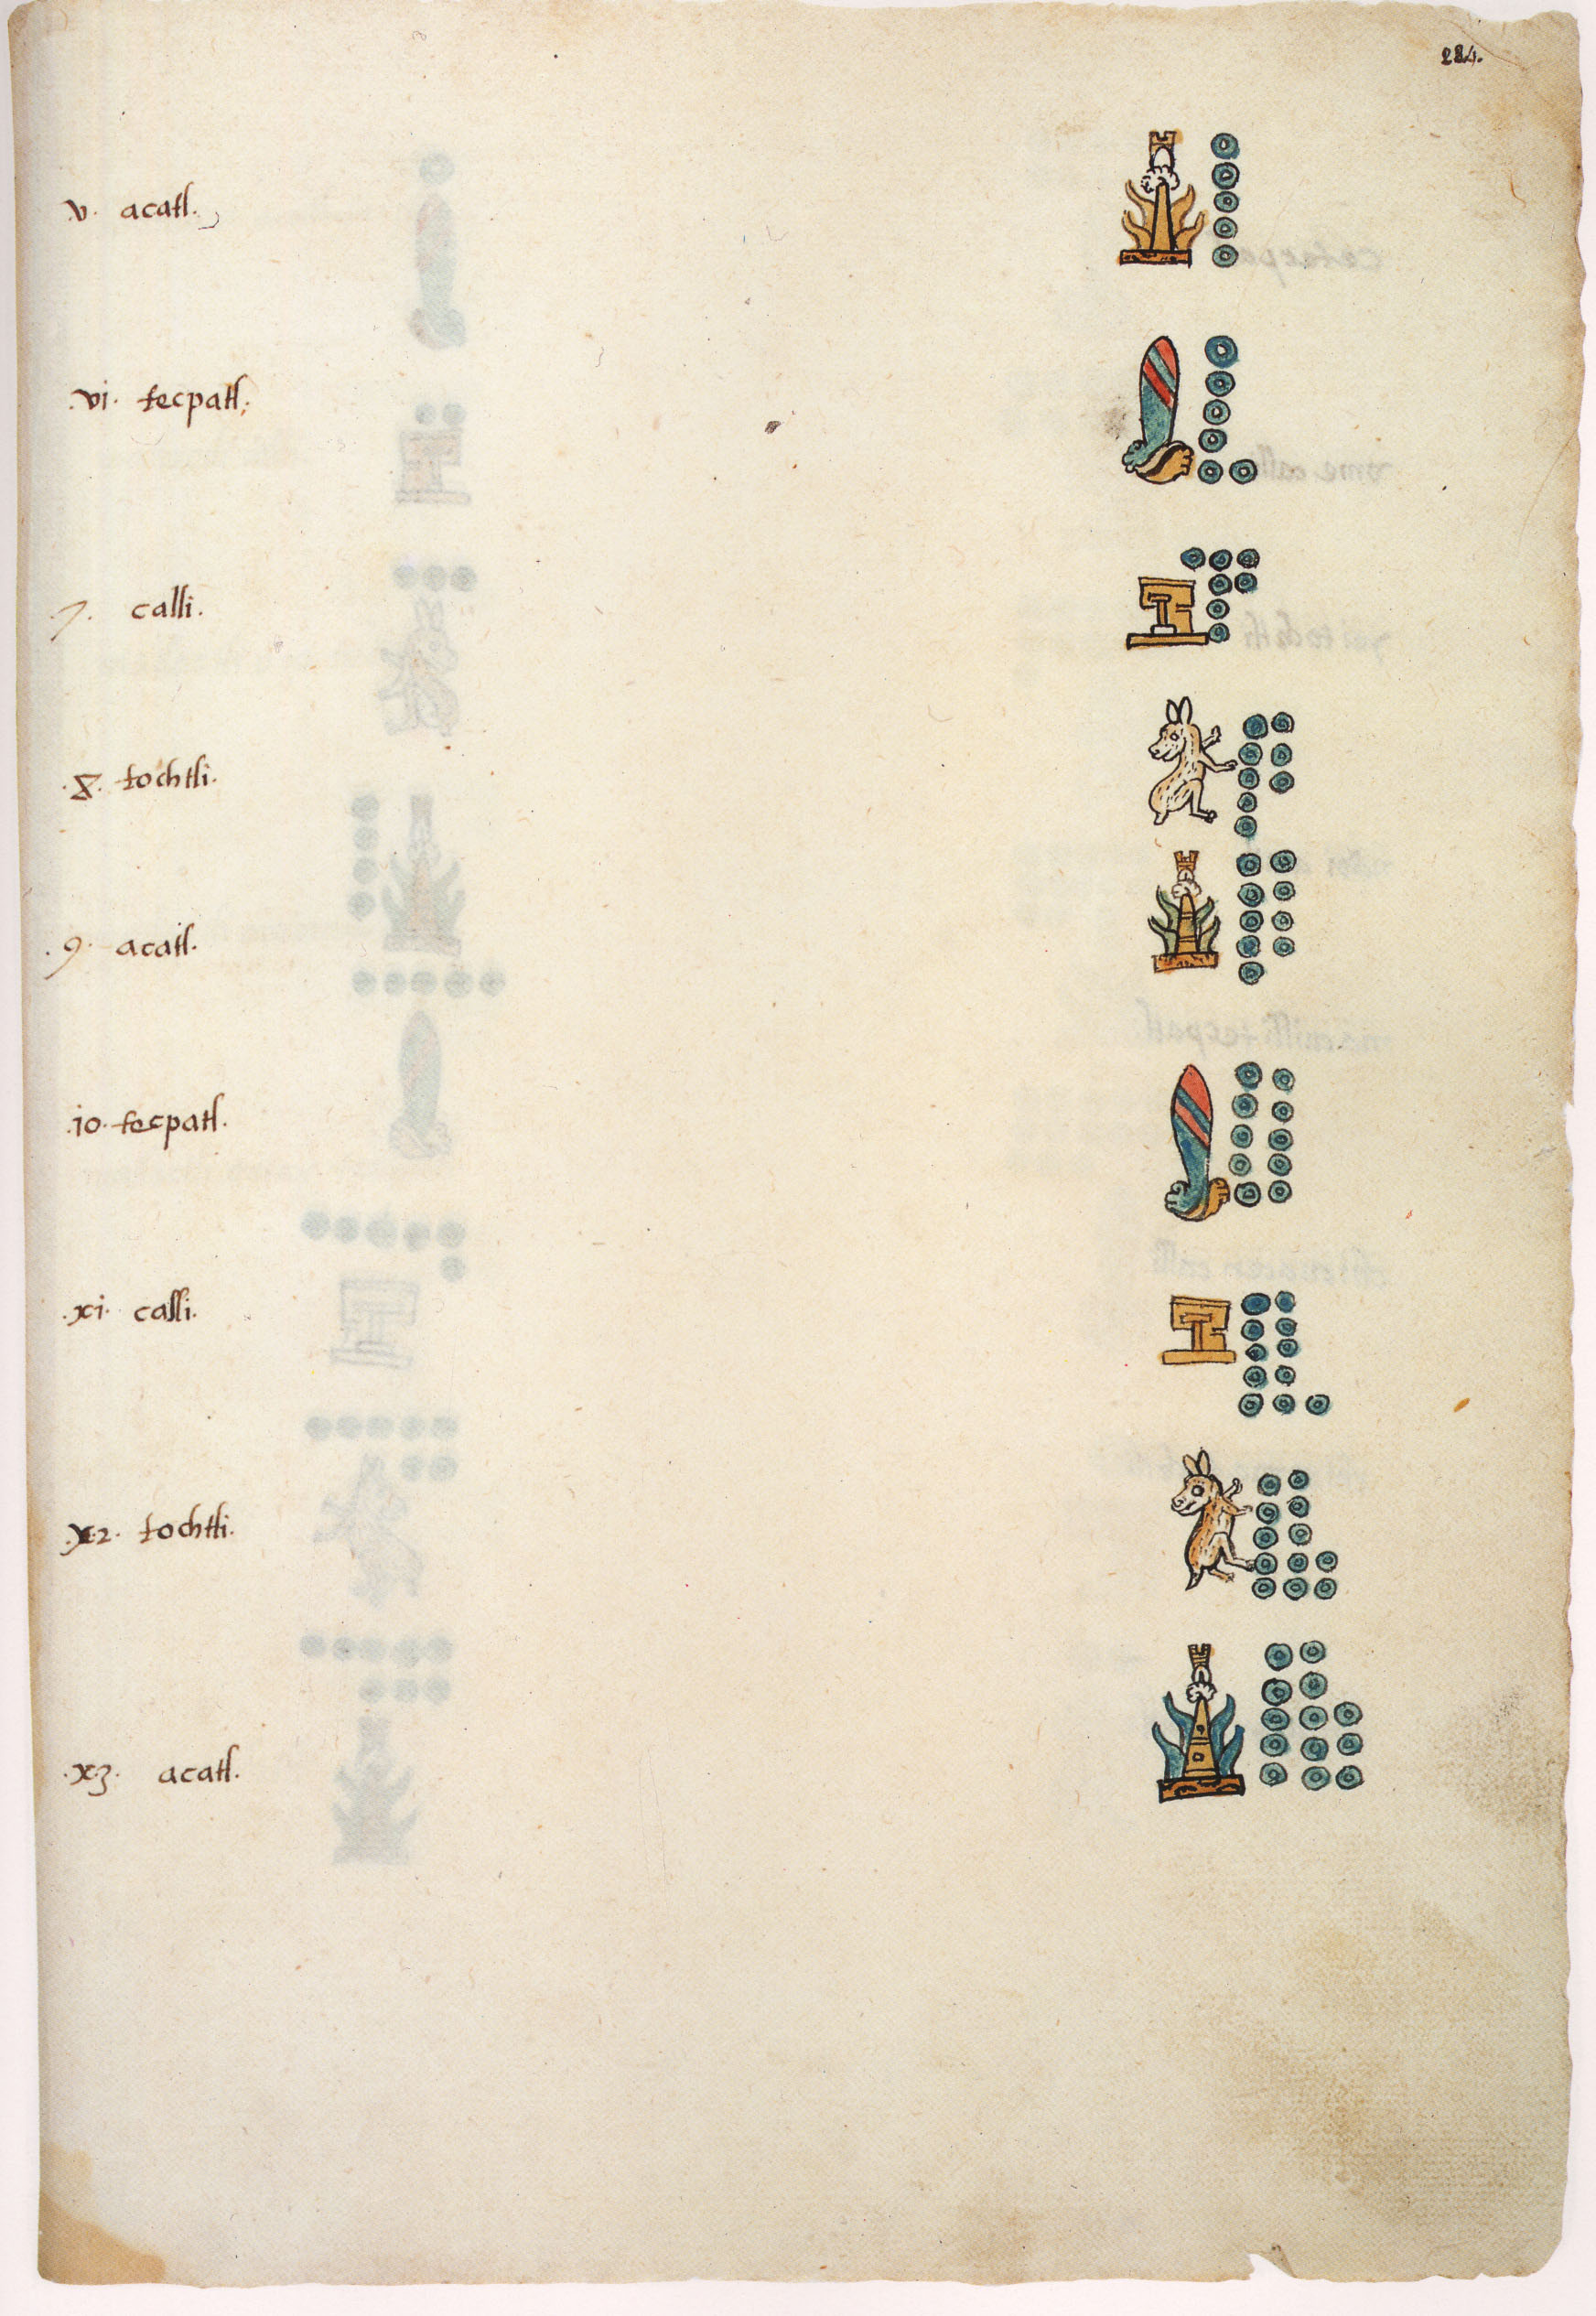 284.
v. acatl.
.vi. tecpatl.
7. calli.
.8. tochtli.
.9. acatl.
.10. tecpatl.
.xi. calli.
.x2. tochtli.
.x3. acatl.